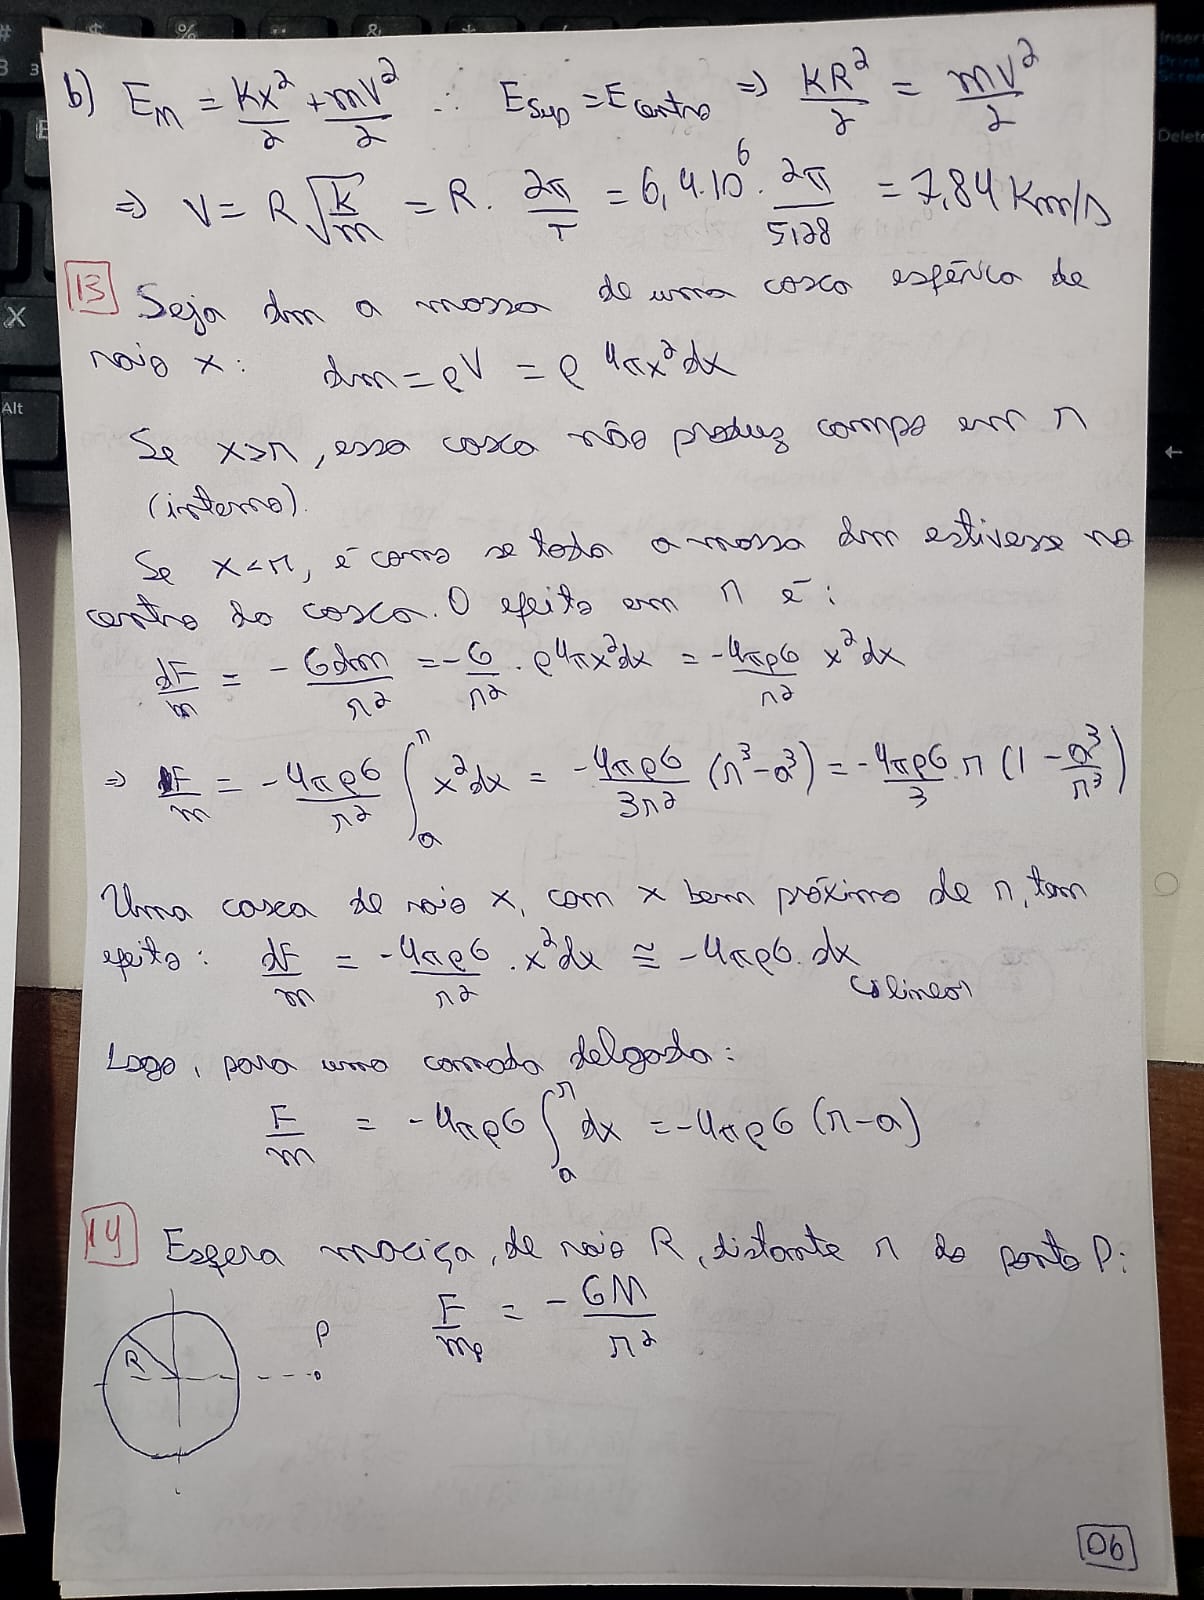 b) Em = Kx²/2 + mV²/2 ∴ Esup = Ecentro ⇒ KR²/2 = mV²/2
⇒ V = R√(k/m) = R. 2π/T = 6,4.10⁶. 2π/5128 = 7,84 Km/s
13 Seja dm a massa de uma casca esférica de
raio x: dm = ρV = ρ 4πx²dx
Se x>r, essa casca não produz campo em r
(interno).
Se x<r, é como se toda a massa dm estivesse no
centro da casca. O efeito em r é:
dF/m = -Gdm/r² = -G/r² . ρ4πx²dx = -4πρG/r² x²dx
⇒ F/m = -4πρG/r² ∫ₐʳ x²dx = -4πρG/3r² (r³-a³) = -4πρG/3 . r (1 - a³/r³)
Uma casca de raio x, com x bem próximo de r, tem
efeito: dF/m = -4πρG/r² . x²dx ≅ -4πρG. dx
↳ linear
Logo, para uma camada delgada:
F/m = -4πρG ∫ₐʳ dx = -4πρG (r-a)
14 Esfera maciça, de raio R, distante r do ponto P:
F/mp = -GM/r²
P
R
06
X
Alt
Insert
Print
Screen
Delete
←